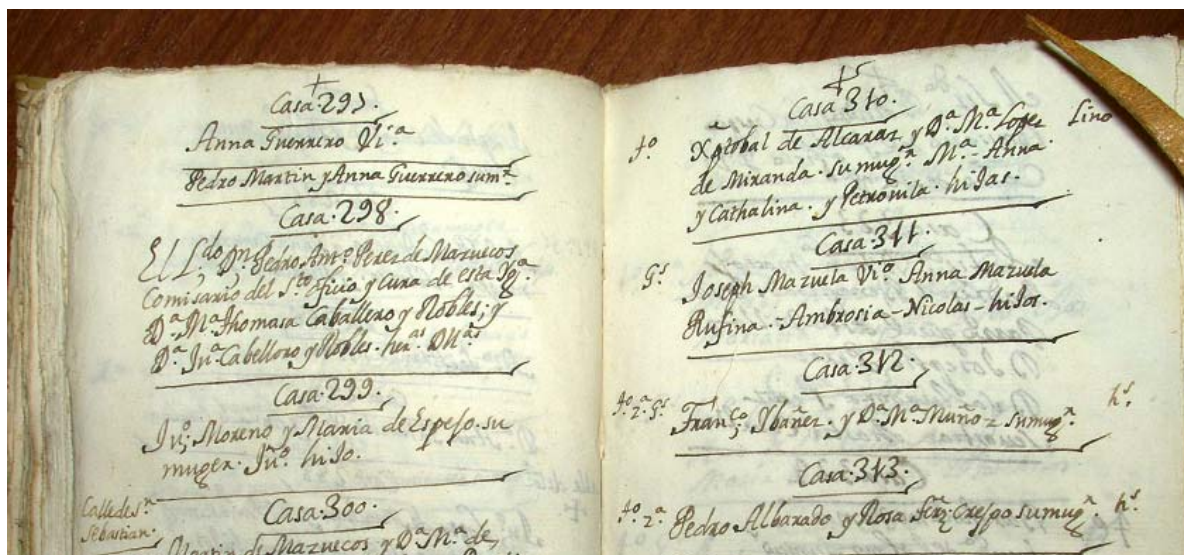 Casa·297·
Anna Guerrero Vi.ª
Pedro Martin y Anna Guerrero sum.ʳ
Casa·298·
El L.do D.n Pedro Ant.º Perez de Mazuecos
Comisario del S.to oficio y Cura de esta Ig.ª
D.ª M.ª Thomasa Caballero y Robles; y
D.ª Ju.ª Cabellero y Robles. her.as
Casa·299·
Ju.º Moreno y Maria de Espejo. su
muger. Ju.º hijo.
Calle de S.n
Sebastian.
Casa·300·
Martin de Mazuecos y D.ª M.ª de
Casa·310·
Xptobal de Alcaraz y D.ª M.ª Lopez Lino
de Miranda. su mug.ʳ M.ª - Anna
y Cathalina. y Petronila. hijas.
Casa·311·
Joseph Mazuela Vi.º Anna Mazuela
Rufina - Ambrosia - Nicolas - hijos.
Casa·312·
Fran.co Ybañez. y D.ª M.ª Muñoz sumug.ʳ h.s
Casa·313·
Pedro Albarado y Rosa Ferz Crespo sumug.ʳ h.s